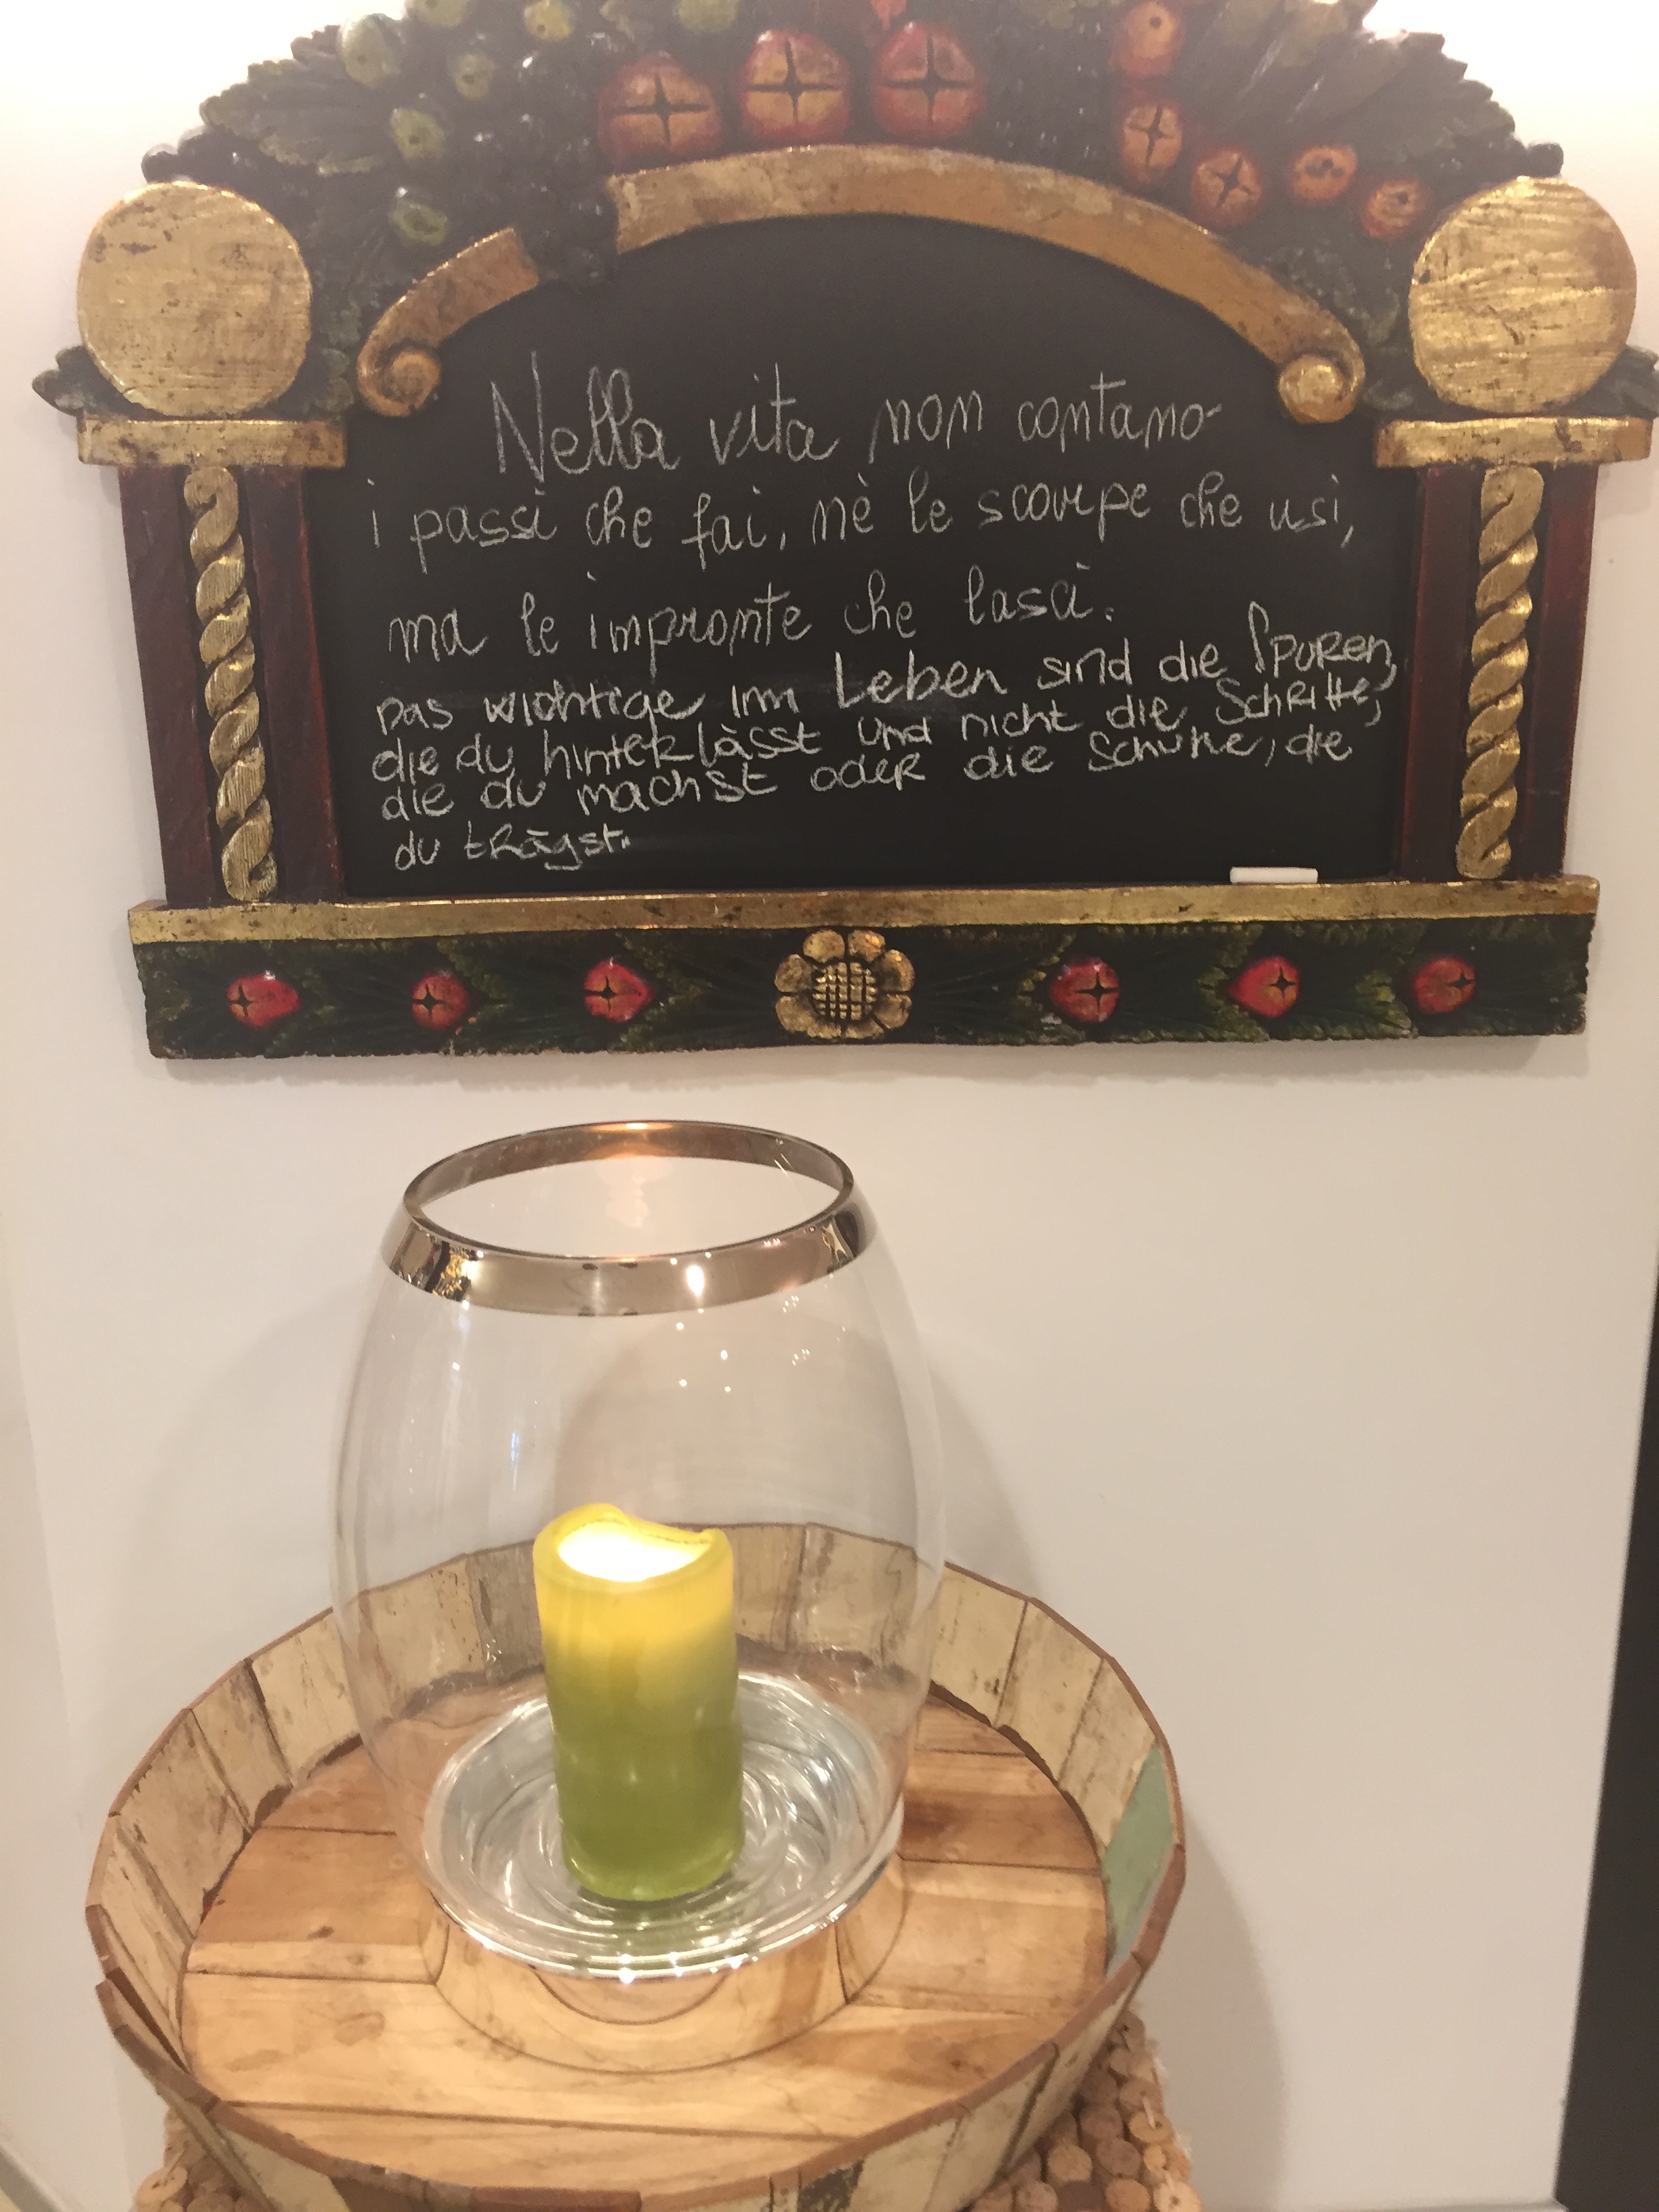 Nella vita non contano
i passi che fai, nè le scarpe che usi,
ma le impronte che lasci.
Das wichtige im Leben sind die Spuren,
die du hinterlässt und nicht die Schritte,
die du machst oder die Schuhe, die
du trägst.